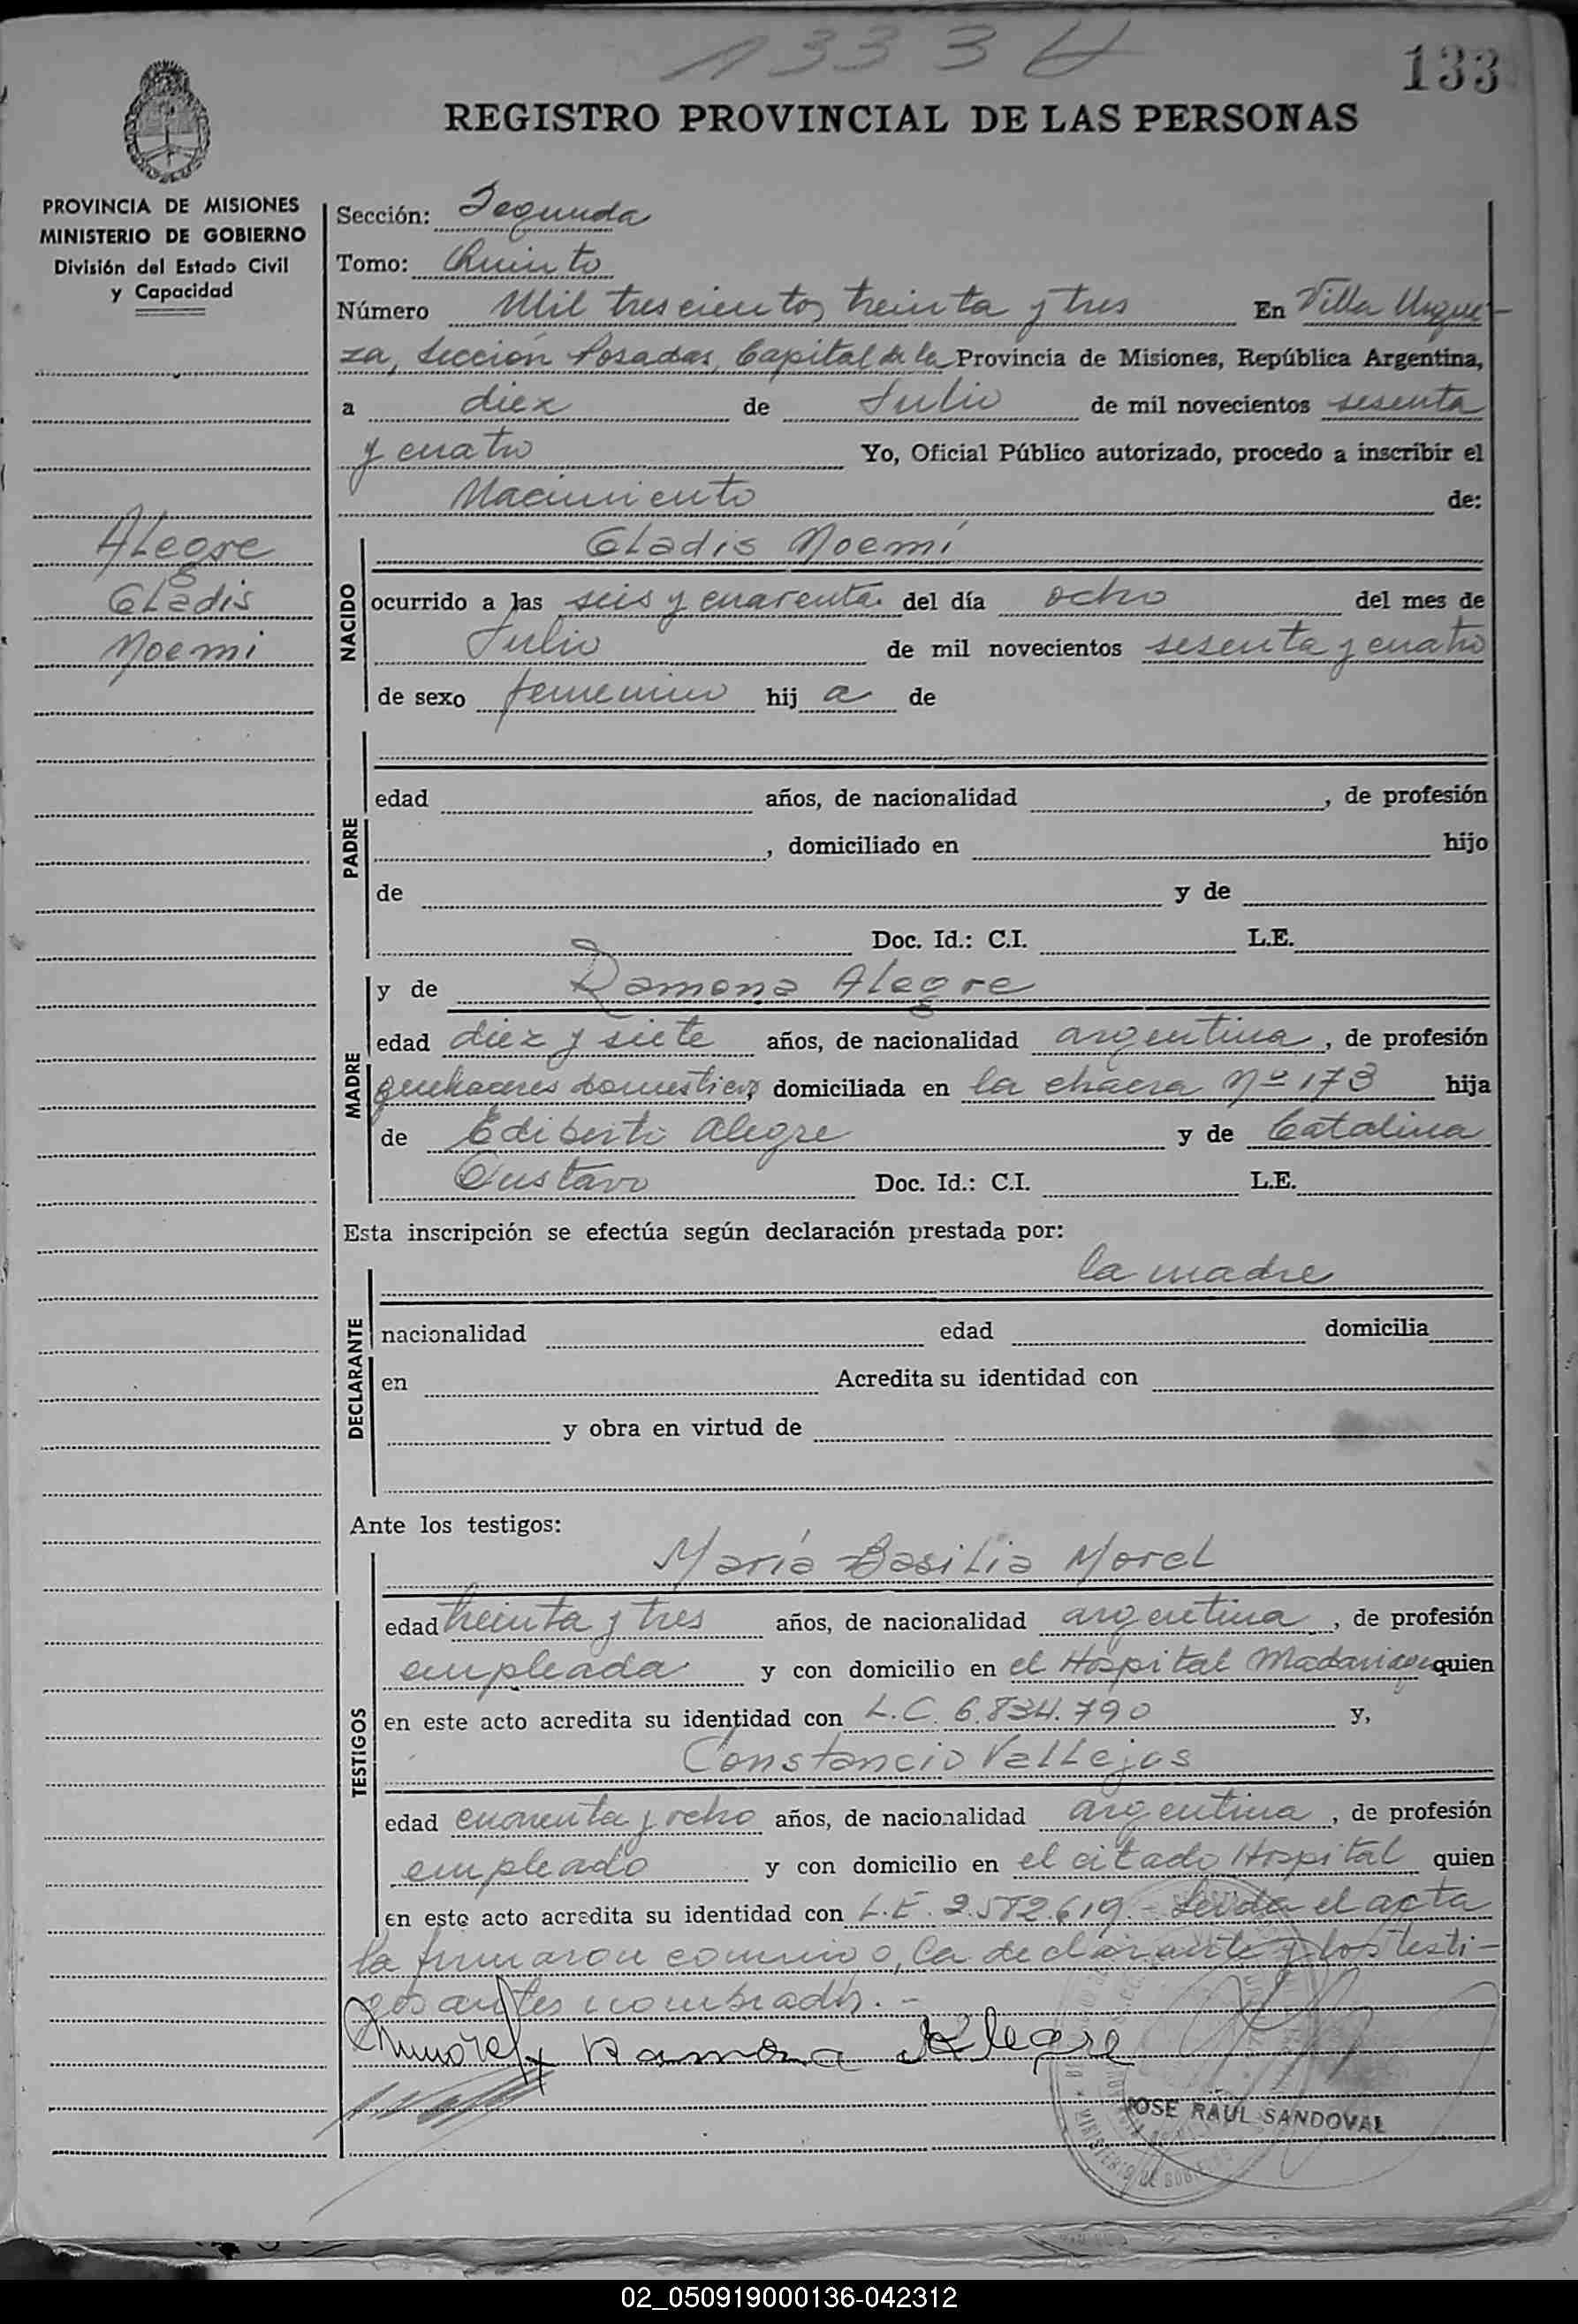 1333
133
REGISTRO PROVINCIAL DE LAS PERSONAS
PROVINCIA DE MISIONES
MINISTERIO DE GOBIERNO
División del Estado Civil
y Capacidad
Alegre
Gladis
Noemi
Sección: Segunda
Tomo: Quinto
Número Mil trescientos treinta y tres En Villa Urqui-
za, Sección Posadas, Capital de la Provincia de Misiones, República Argentina,
a diez de Julio de mil novecientos sesenta
y cuatro Yo, Oficial Público autorizado, procedo a inscribir el
Nacimiento de:
NACIDO
Gladis Noemí
ocurrido a las seis y cuarenta del día ocho del mes de
Julio de mil novecientos sesenta y cuatro
de sexo femenino hij a de
PADRE
edad años, de nacionalidad , de profesión
, domiciliado en hijo
de y de
Doc. Id.: C.I. L.E.
MADRE
y de Ramona Alegre
edad diez y siete años, de nacionalidad argentina, de profesión
quehaceres domesticos, domiciliada en la chacra Nº 173 hija
de Ediberto Alegre y de Catalina
Doc. Id.: C.I. L.E.
Esta inscripción se efectúa según declaración prestada por:
DECLARANTE
la madre
nacionalidad edad domicilia
en Acredita su identidad con
y obra en virtud de
Ante los testigos:
TESTIGOS
María Basilia Morel
edad treinta y tres años, de nacionalidad argentina, de profesión
empleada y con domicilio en el Hospital Madariaga quien
en este acto acredita su identidad con L.C. 6.834.790 y,
Constancio Vallejos
edad cuarenta y ocho años, de nacionalidad argentina, de profesión
empleado y con domicilio en el citado Hospital quien
en este acto acredita su identidad con L.E. 2.582.619.- Leida el acta
la firmaron conmigo, la declarante y los testi-
gos antes nombrados.-
Ramona Alegre
JOSE RAUL SANDOVAL
02_050919000136-042312